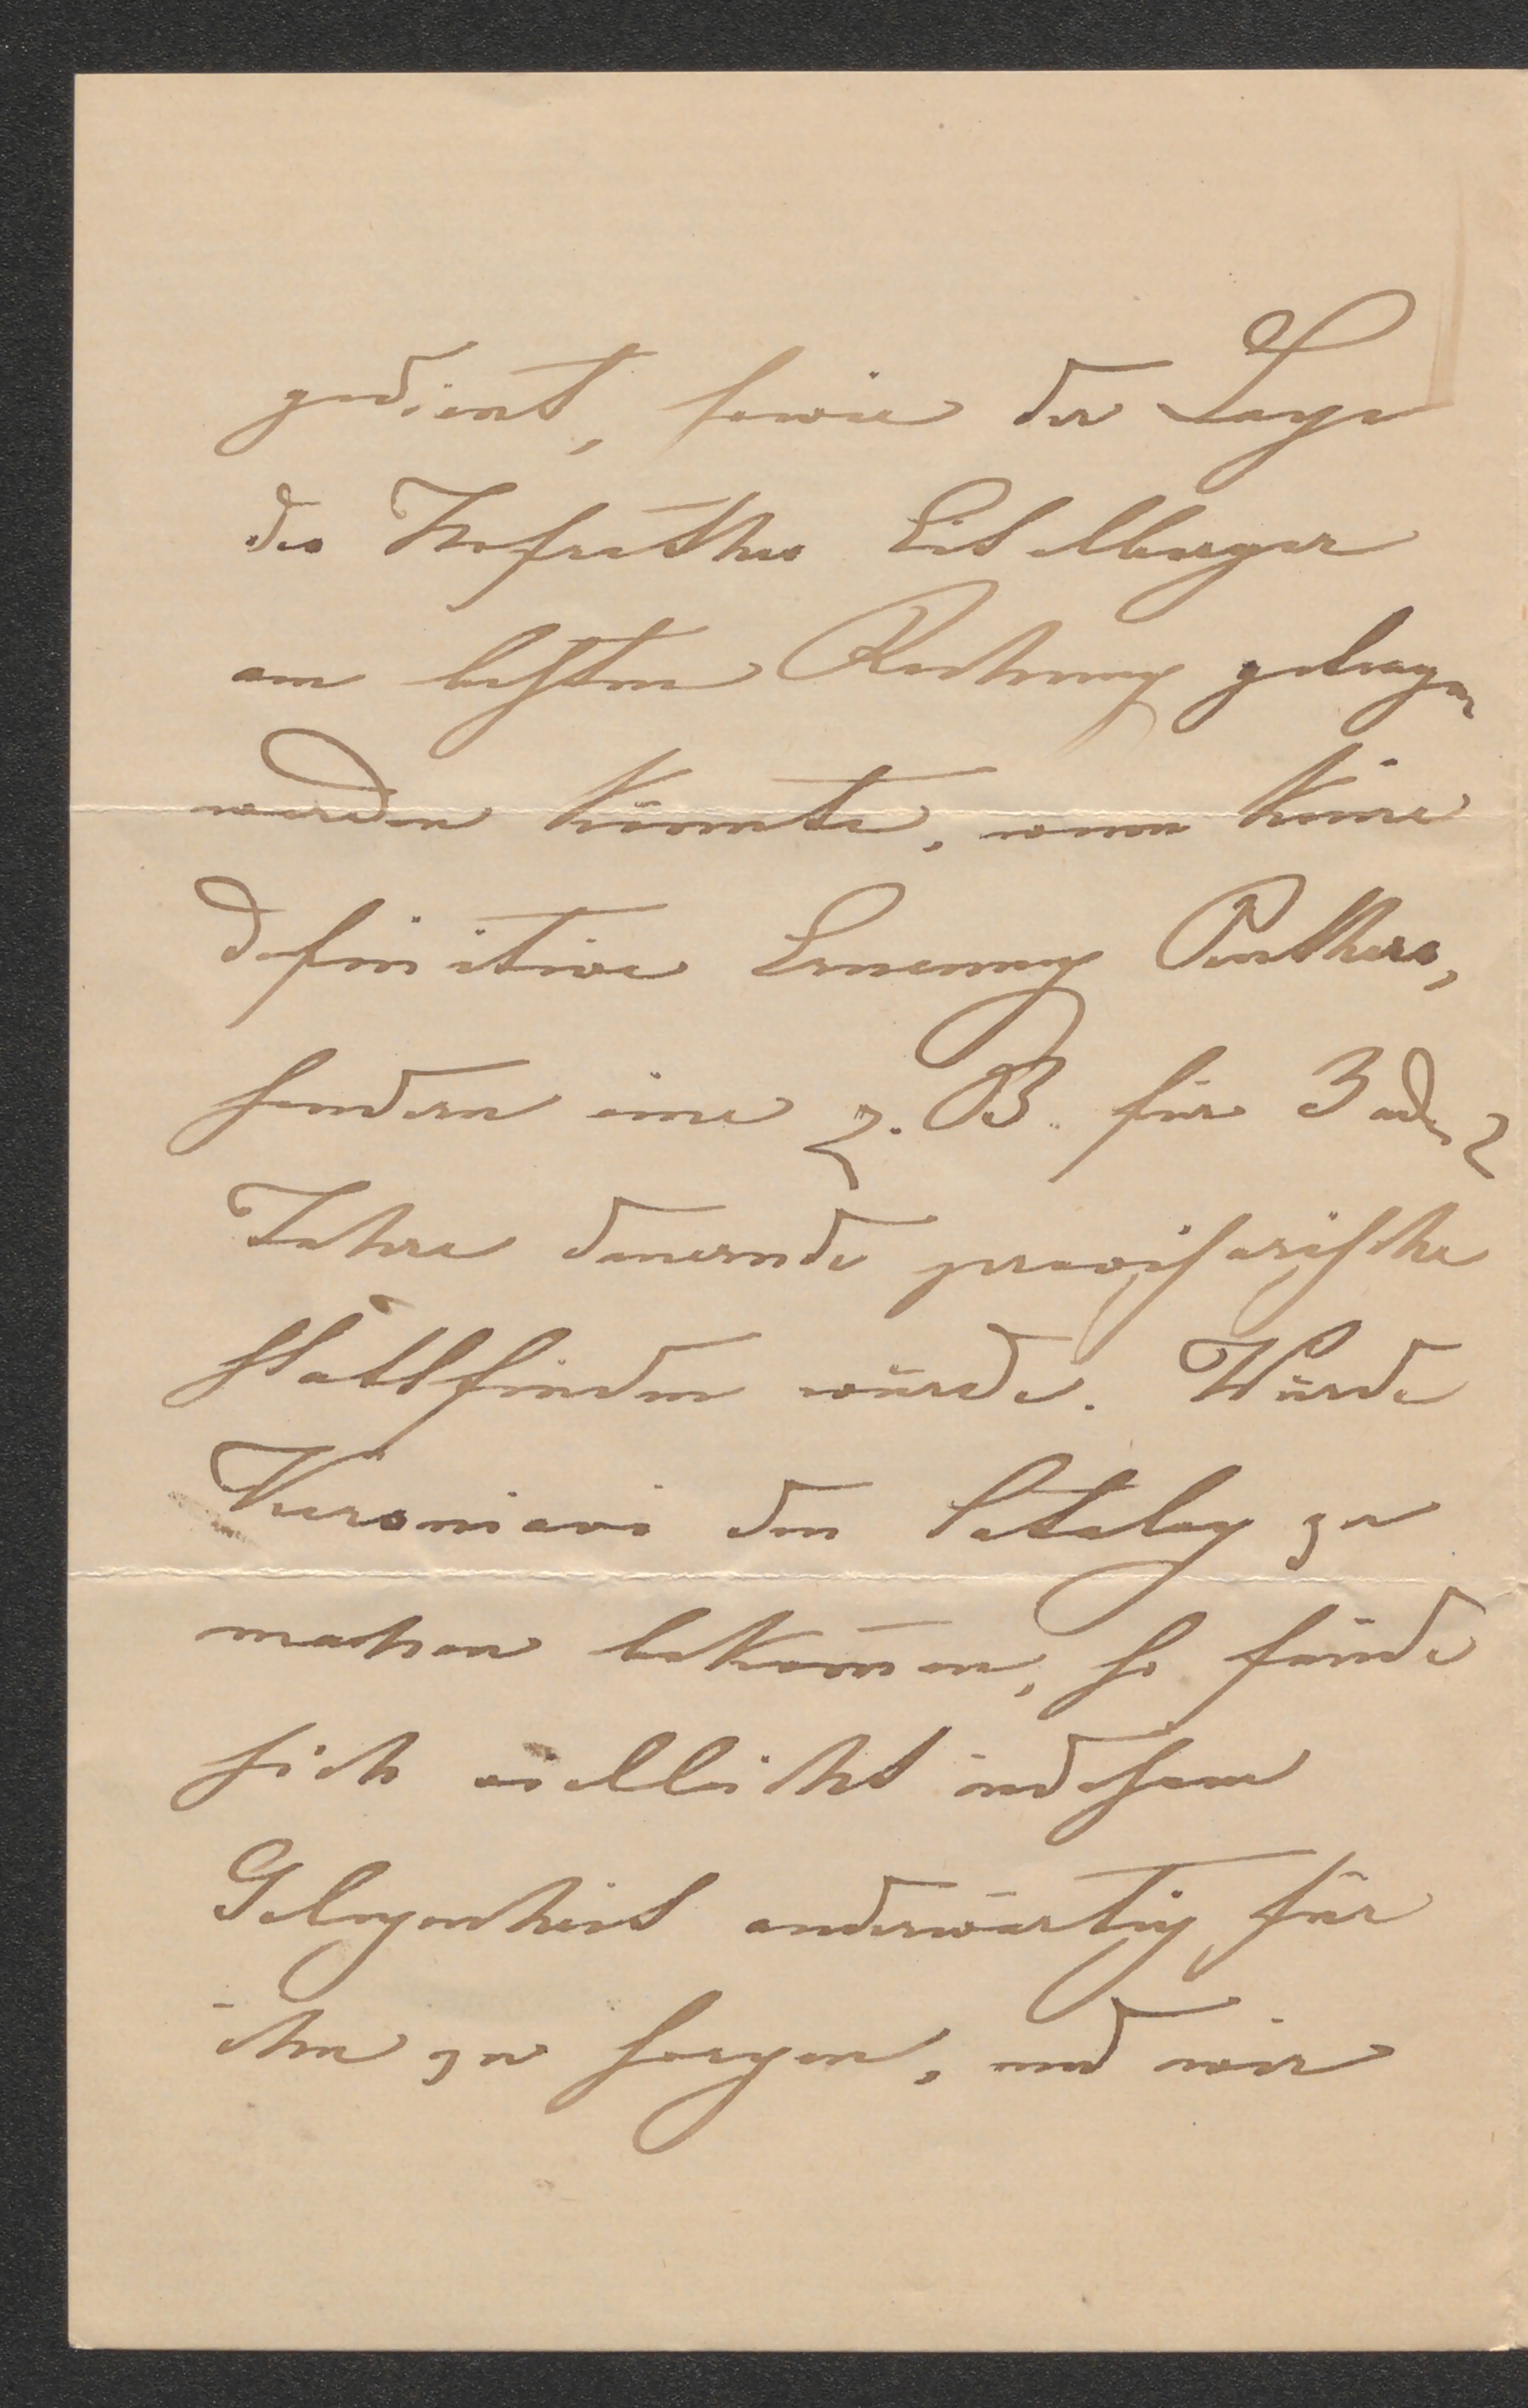 gedient, sowie der Lage
des Hofrathes Eitelberger
am besten Rechnung getragen
werden könnte, wenn keine
definitive Ernennung Panthers,
sondern eine z. B. für 3 oder 2
Jahre dauernde provisorische
stattfinden würde. Würde
den Catalog zu
machen bekommen, so fände
sich vielleicht indessen
Gelegenheit anderwärtig für
ihn zu sorgen, und wir